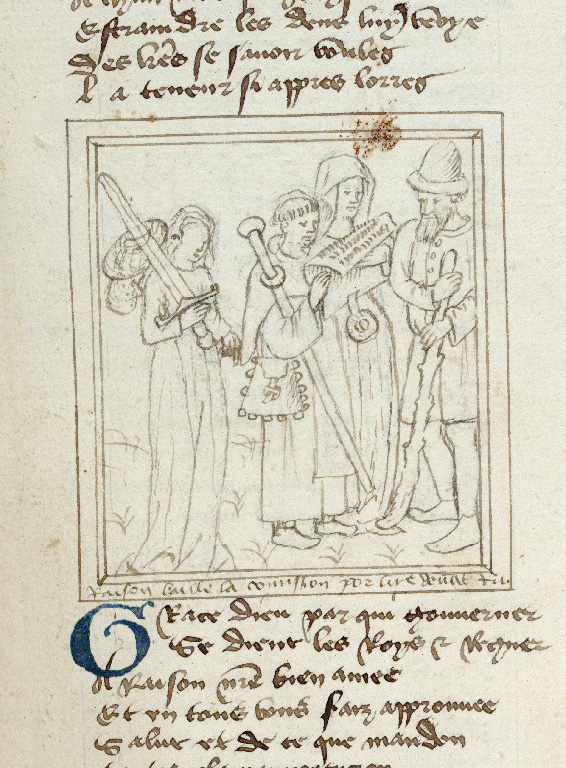 Estraindre les dens luy
Des lrẽs se sauoir voules
La teneur si appres lorres
Raison baille la comission por lire
Grace dieu par qui gouuerner
Se dient les Roys & Regner
A Raison nrẽ bien amee
Et en tous bons faiz approuuee
Salut et de ce que mandon